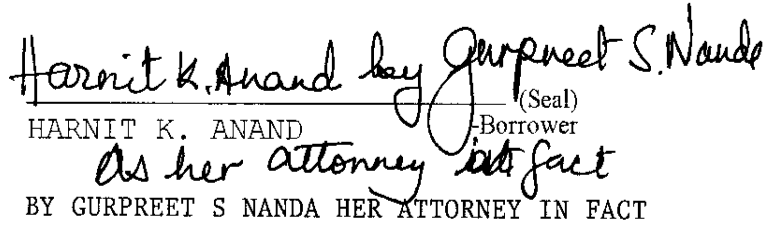 Harnit K. Anand by Gurpreet S. Nanda
(Seal)
HARNIT K. ANAND -Borrower
As her attorney in fact
BY GURPREET S NANDA HER ATTORNEY IN FACT